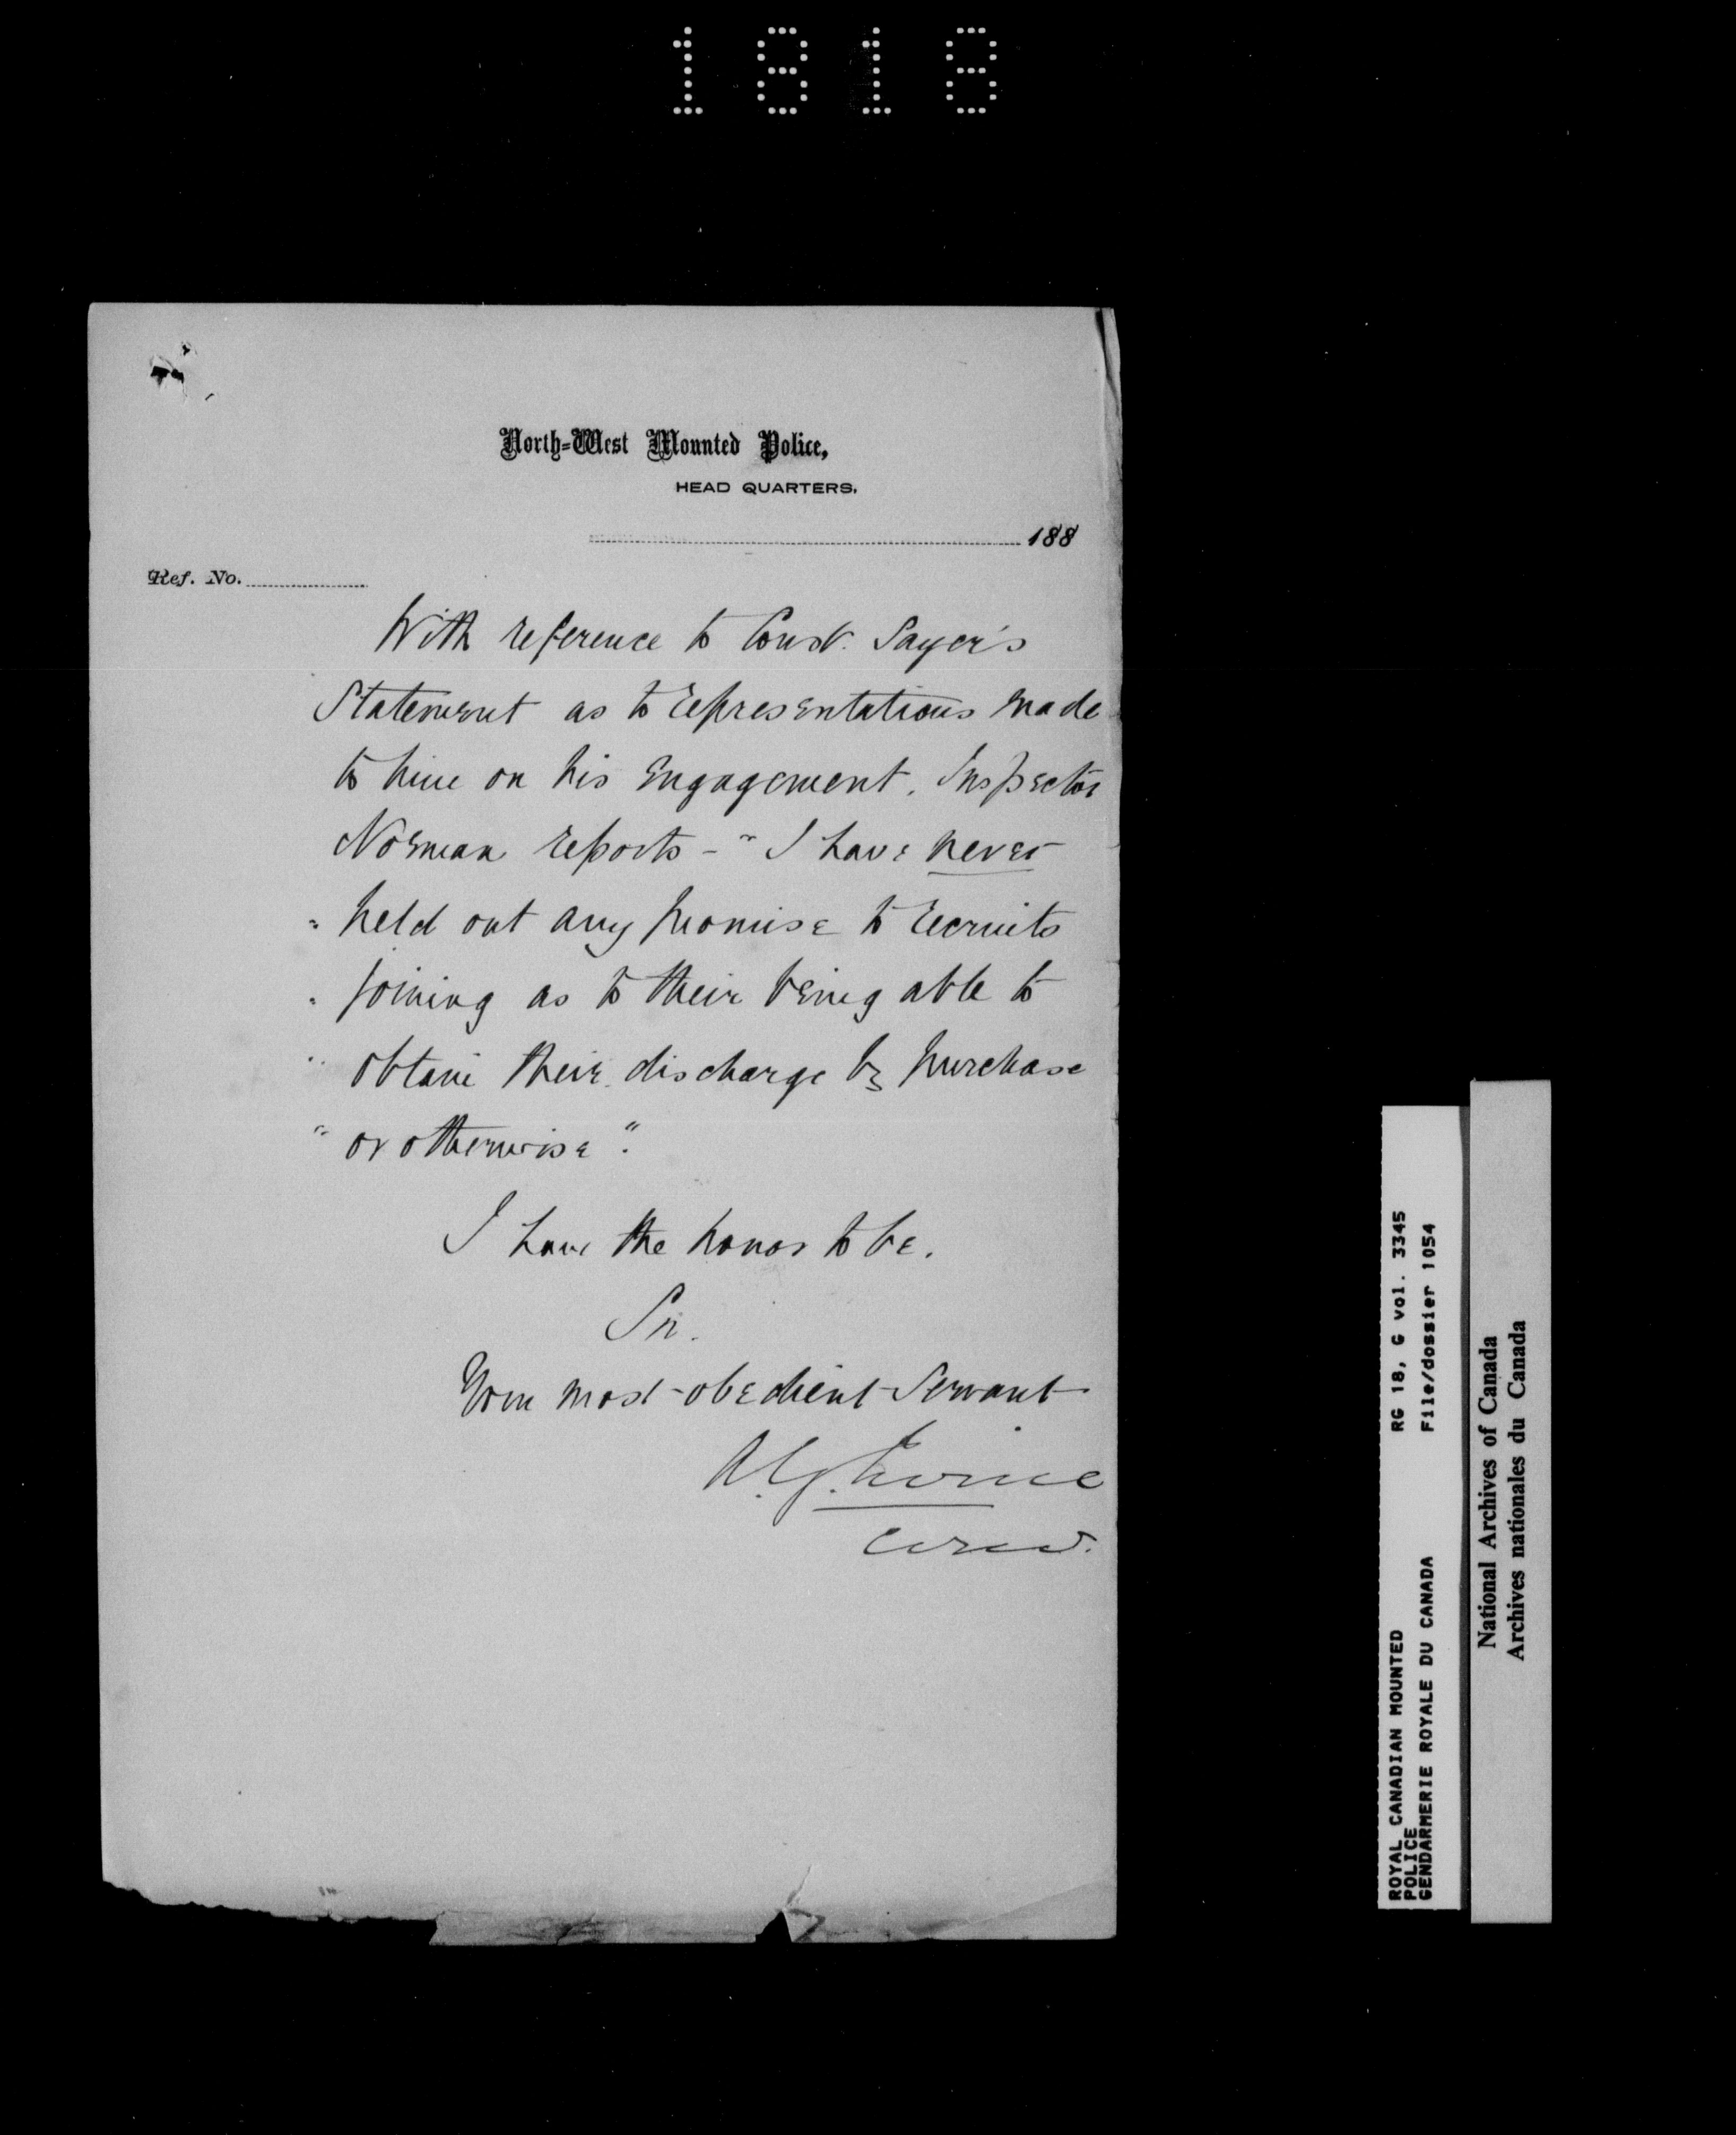 1818
North-West Mounted Police,
HEAD QUARTERS.
188
Ref. No.
With reference to Const. Sayer's
Statement as to representations made
to him on his engagement. Inspector
Norman reports - " I have never
" held out any promise to recruits
" joining as to their being able to
" obtain their discharge by purchase
" or otherwise ".
I have the honor to be.
Sir.
Your most obedient Servant
A.G. Irvine
ROYAL CANADIAN MOUNTED
POLICE
GENDARMERIE ROYALE DU CANADA
RG 18, G vol. 3345
File/dossier 1054
National Archives of Canada
Archives nationales du Canada